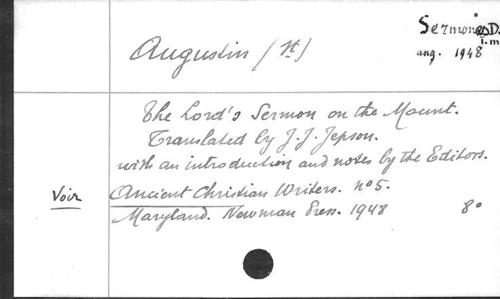 Sermone D.
i.m
ang. 1948
Augustin (St)
The Lord's Sermon on the Mount.
Translated by J.J. Jepson.
with an introduction and notes by the Editors.
Voir
Ancient Christian Writers. no 5.
Maryland. Newman Press. 1948 8o